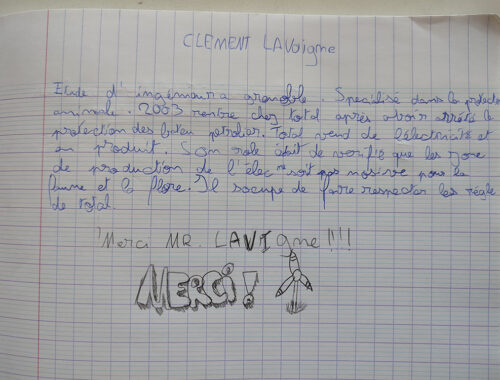 CLEMENT LAVaigne
Etude d'ingénieur a grenoble. Specialisé dans la protection
animale. 2003 rentre chez total après avoir arrêté la
protection des bateu petrolier. Total vend de l'électricité et
en produit. Son role était de verifié que les zone
de production de l'élec soit pas nosive pour la
faune et la flore. Il s'ocupe de faire respecter les régle
de total.
Merci MR. LAVIgne!!!!
MERCi!